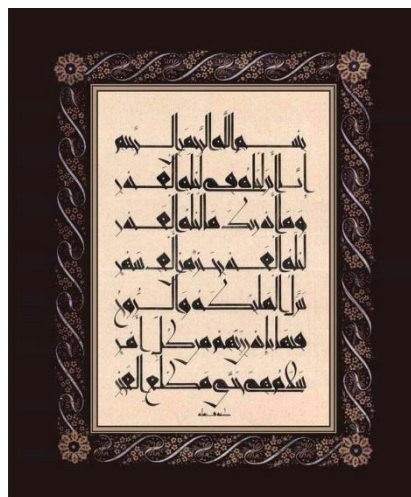 بسم الله الرحمن الرحيم
إنا أنزلناه في ليلة القدر
وما أدريك ما ليلة القدر
ليلة القدر خير من ألف شهر
تنزل الملئكة والروح
فيها بإذن ربهم من كل أمر
سلام هي حتى مطلع الفجر